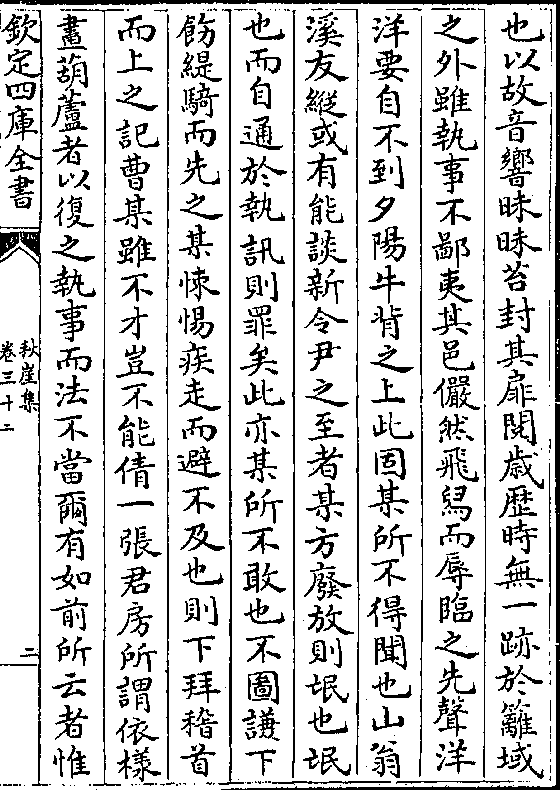 也以故音響昧昧苔封其扉閱歳歴時無一跡於籬域
之外雖執事不鄙夷其邑儼然飛舄而辱臨之先聲洋
洋要自不到夕陽牛背之上此固某所不得聞也山翁
溪友縱或有能談新令尹之至者某方廢放則氓也氓
也而自通於執訊則罪矣此亦某所不敢也不圖謙下
飭緹騎而先之某悚惕疾走而避不及也則下拜稽首
而上之記曹某雖不才豈不能倩一張君房所謂依様
畫葫蘆者以復之執事而法不當爾有如前所云者惟
欽定四庫全書
秋崖集
卷三十二
二